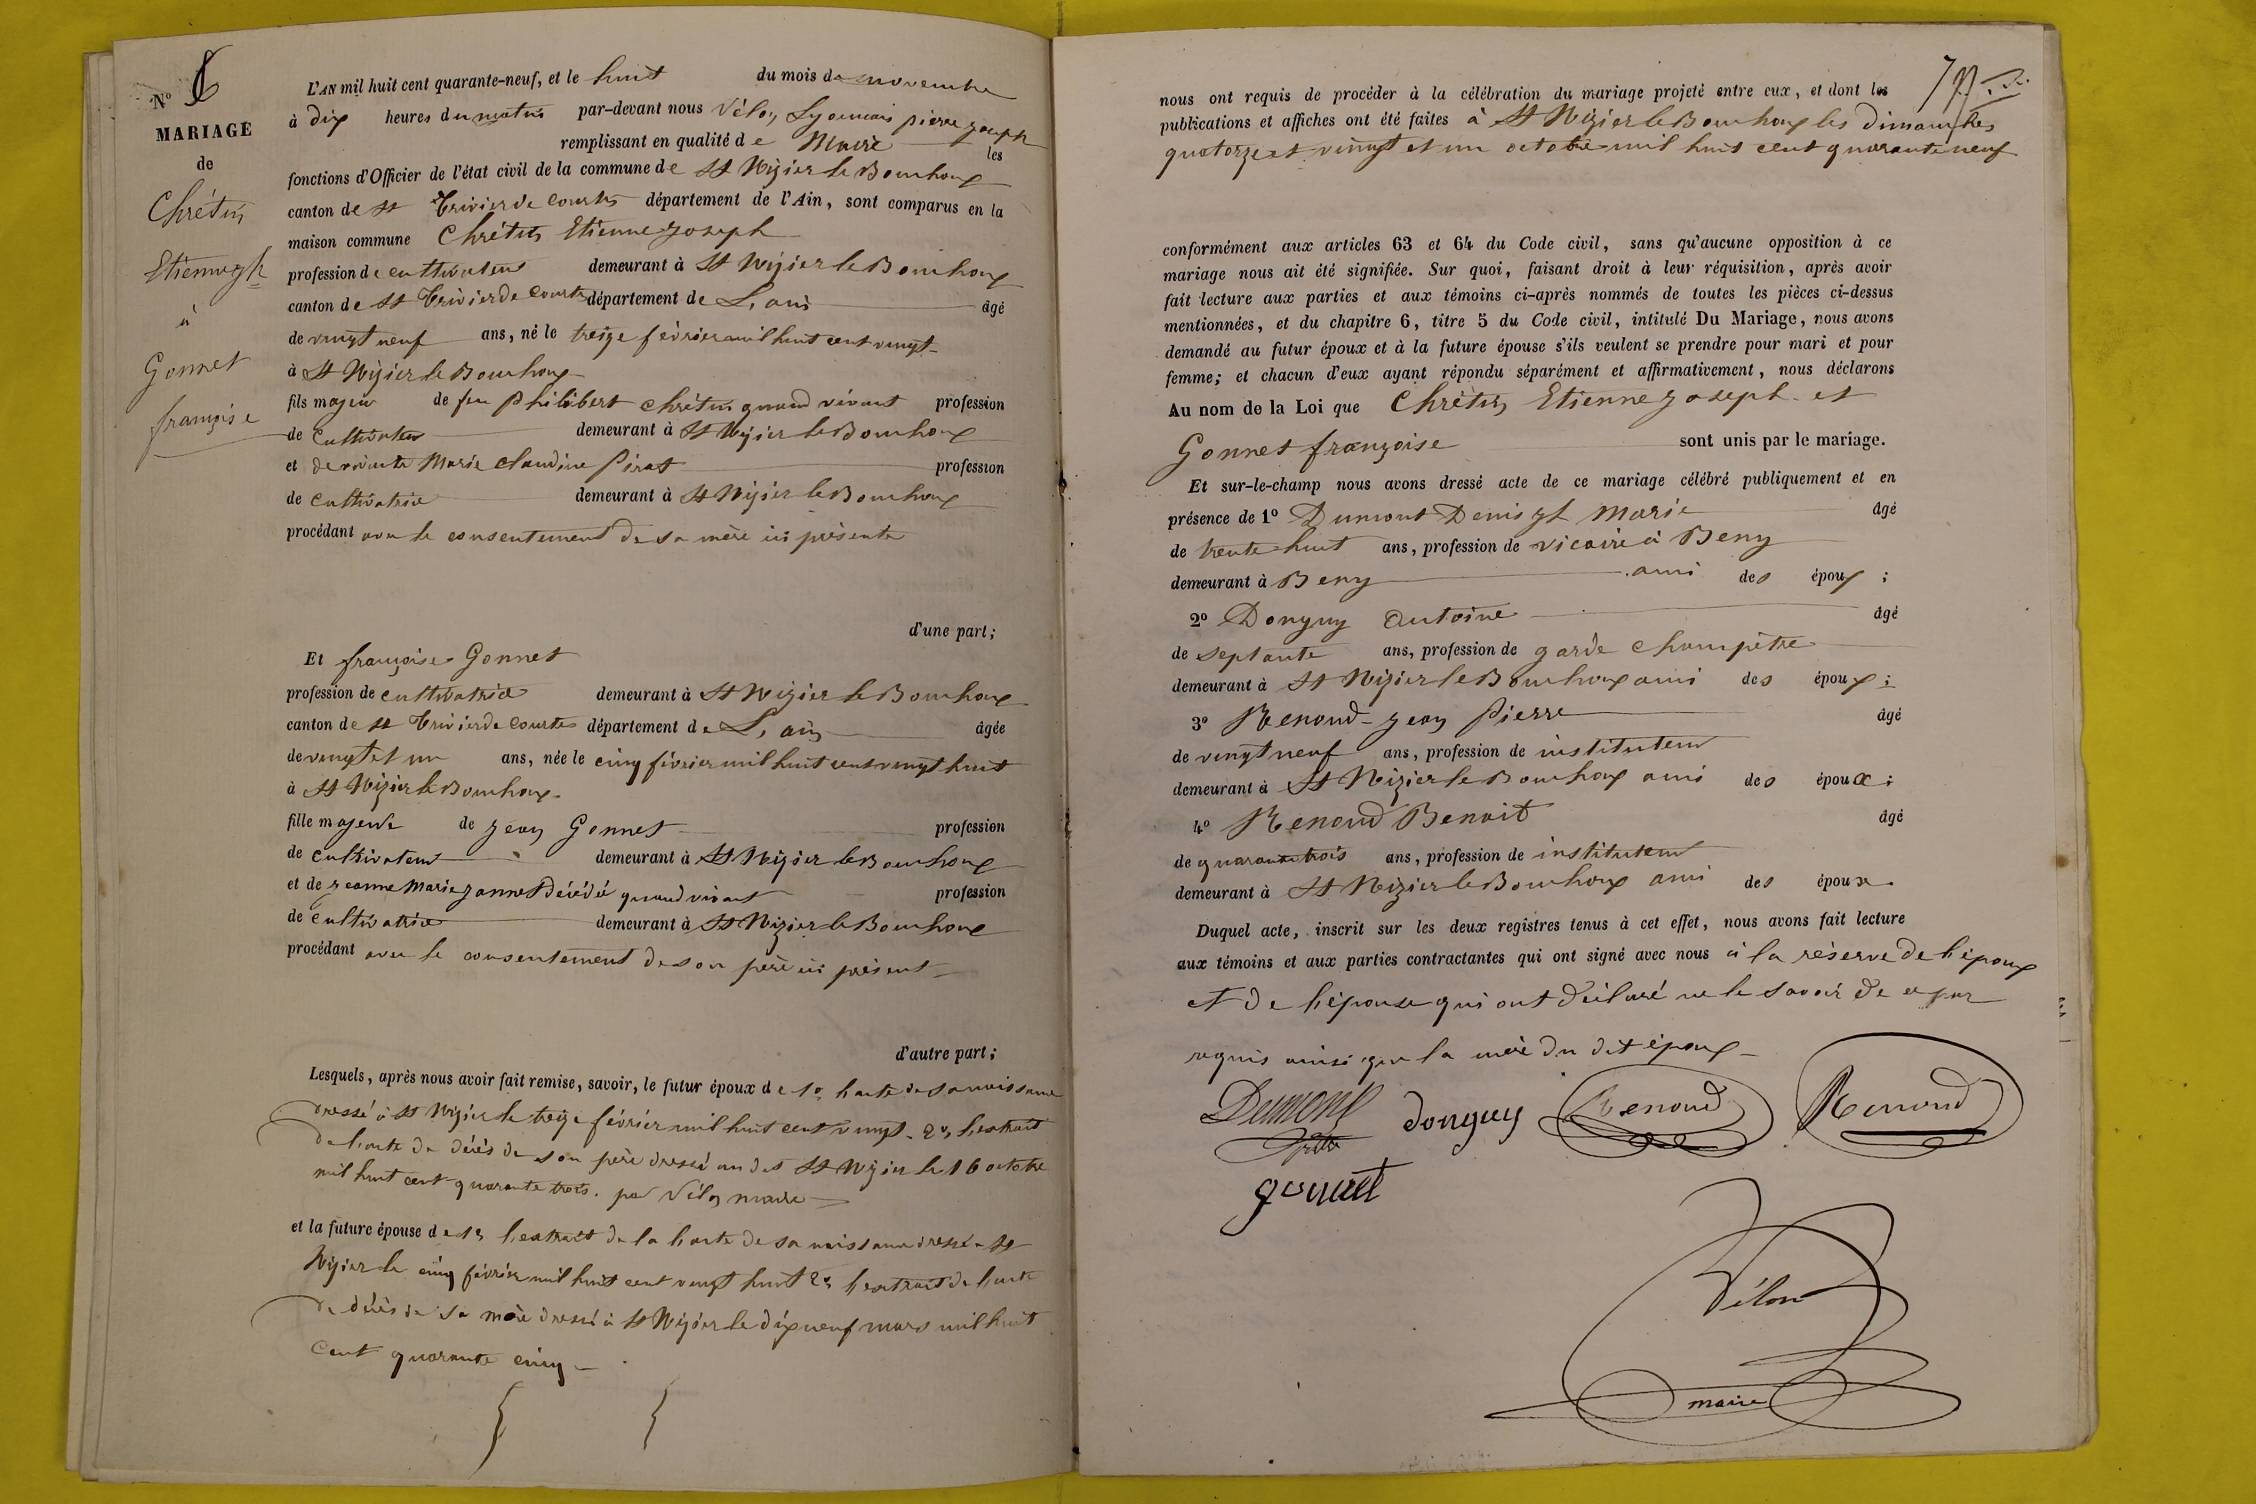 N° 6
MARIAGE
de
Chrétin
Etienne Jh
à
Gonnet
françoise
L'AN mil huit cent quarante-neuf, et le huit du mois de novembre
à dix heures du matin par-devant nous Vélon, Lyonnais pierre joseph
remplissant en qualité de Maire les
fonctions d'Officier de l'état civil de la commune de St Nizier le Bouchoux
canton de St Trivier de Courtes département de l'Ain, sont comparus en la
maison commune Chrétin Etienne Joseph
profession de cultivateur demeurant à St Nizier le Bouchoux
canton de St Trivier de Courtes département de L'ain âgé
de vingt neuf ans, né le treize février mil huit cent vingt
à St Nizier le Bouchoux
fils majeur de feu Philibert Chrétin quand vivant profession
de Cultivateur demeurant à St Nizier le Bouchoux
et de vivante Marie Claudine Pirat profession
de Cultivatrice demeurant à St Nizier le Bouchoux
procédant avec le consentement de sa mère ici présente
d'une part;
Et françoise Gonnet
profession de cultivatrice demeurant à St Nizier le Bouchoux
canton de St Trivier de Courtes département de L'ain âgée
de vingt et un ans, née le cinq février mil huit cent vingt huit
à St Nizier le Bouchoux
fille majeure de Jean Gonnet profession
de cultivateur demeurant à St Nizier le Bouchoux
et de Jeanne Marie Jannet décédé quand vivant profession
de Cultivatrice demeurant à St Nizier le Bouchoux
procédant avec le consentement de son père ici présent
d'autre part;
Lesquels, après nous avoir fait remise, savoir, le futur époux de 1° l'acte de sa naissance
dressé à St Nizier le treize février mil huit cent vingt. 2° l'extrait
de l'acte de décès de son père dressé au dit St Nizier le 16 octobre
mil huit cent quarante trois. par Vélon maire
et la future épouse de 1° l'extrait de la l'acte de sa naissance dressé à St
Nizier le cinq février mil huit cent vingt huit 2° l'extrait de l'acte
de décès de sa mère dressé à St Nizier le dix neuf mars mil huit
cent quarante cinq
nous ont requis de procéder à la célébration du mariage projeté entre eux, et dont les
publications et affiches ont été faites à St Nizier le Bouchoux les dimanches
quatorze et vingt et un octobre mil huit cent quarante neuf
conformément aux articles 63 et 64 du Code civil, sans qu'aucune opposition à ce
mariage nous ait été signifiée. Sur quoi, faisant droit à leur réquisition, après avoir
fait lecture aux parties et aux témoins ci-après nommés de toutes les pièces ci-dessus
mentionnées, et du chapitre 6, titre 5 du Code civil, intitulé Du Mariage, nous avons
demandé au futur époux et à la future épouse s'ils veulent se prendre pour mari et pour
femme; et chacun d'eux ayant répondu séparément et affirmativement, nous déclarons
Au nom de la Loi que Chrétin Etienne Joseph et
Gonnet françoise sont unis par le mariage.
Et sur-le-champ nous avons dressé acte de ce mariage célébré publiquement et en
présence de 1° Dumont Denis Jh Marie âgé
de trente huit ans, profession de vicaire à Beny
demeurant à Beny ami des époux;
2° Donguy Antoine âgé
de septante ans, profession de garde champêtre
demeurant à St Nizier le Bouchoux ami des époux;
3° Renoud Jean Pierre âgé
de vingt neuf ans, profession de instituteur
demeurant à St Nizier le Bouchoux ami des époux;
4° Renoud Benoit âgé
de quarante trois ans, profession de instituteur
demeurant à St Nizier le Bouchoux ami des époux.
Duquel acte, inscrit sur les deux registres tenus à cet effet, nous avons fait lecture
aux témoins et aux parties contractantes qui ont signé avec nous à la réserve de l'époux
et de l'épouse qui ont déclaré ne le savoir de ce par
requis ainsi que la mère du dit époux
Dumont donguy Renoud Renoud
gonnet
Vélon
maire